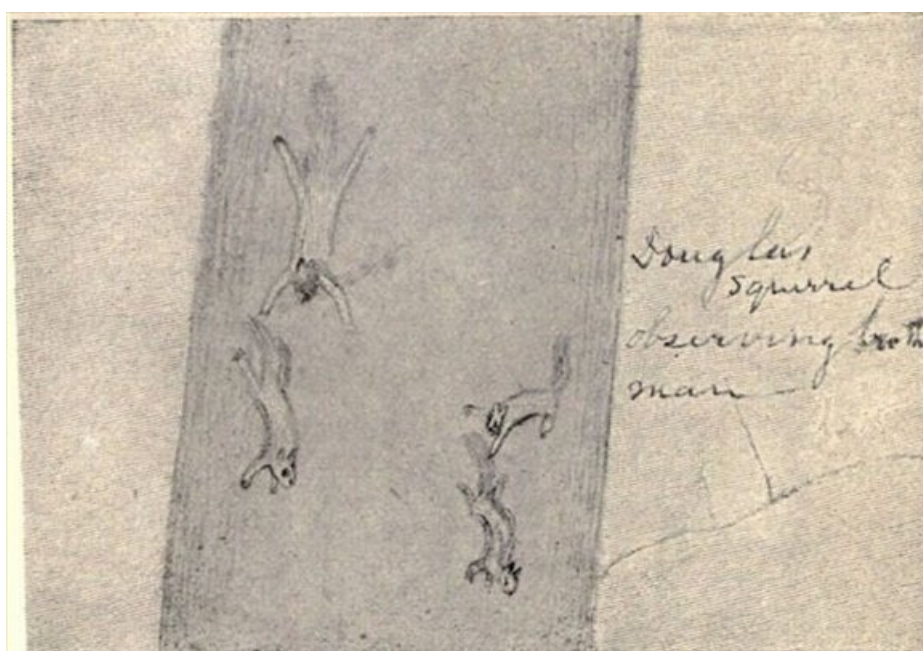 Douglas
squirrel
observing broth
man